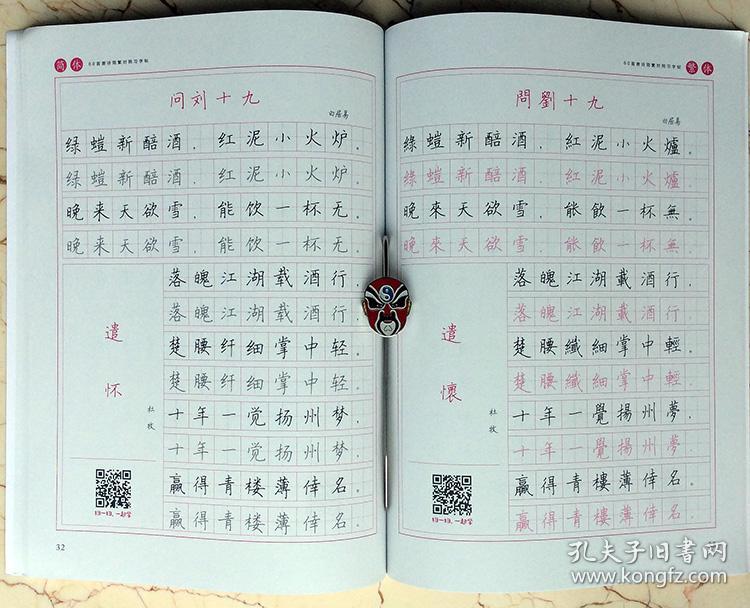 简体
60首唐诗简繁对照习字帖
问刘十九
白居易
绿螘新醅酒，红泥小火炉。
绿螘新醅酒，红泥小火炉。
晚来天欲雪，能饮一杯无。
晚来天欲雪，能饮一杯无。
遣怀
杜牧
落魄江湖载酒行，
落魄江湖载酒行，
楚腰纤细掌中轻。
楚腰纤细掌中轻。
十年一觉扬州梦，
十年一觉扬州梦，
赢得青楼薄倖名。
赢得青楼薄倖名。
扫一扫，一起学
32
60首唐诗简繁对照习字帖
繁体
問劉十九
白居易
綠螘新醅酒，紅泥小火爐。
綠螘新醅酒，紅泥小火爐。
晚來天欲雪，能飲一杯無。
晚來天欲雪，能飲一杯無。
遣懷
杜牧
落魄江湖載酒行，
落魄江湖載酒行，
楚腰纖細掌中輕。
楚腰纖細掌中輕。
十年一覺揚州夢，
十年一覺揚州夢，
贏得青樓薄倖名。
贏得青樓薄倖名。
扫一扫，一起学
孔夫子旧书网
www.kongfz.com